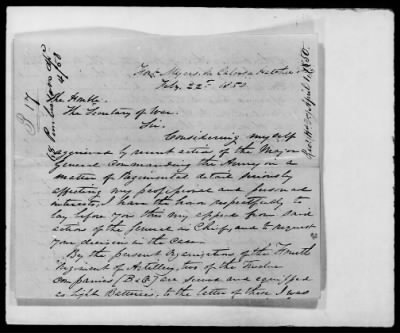 Fort Myers, on Caloosa Hatchee
Feby. 22d 1850.
The Honble.
The Secretary of War.
Sir.
Considering myself
aggrieved by recent action of the Major
General Commanding the Army in a
matter of Regimental detail seriously
affecting my professional and personal
interests, I have the honor respectfully to
lay before you this my appeal from said
action of the General in Chief, and to request
your decision in the case.
By the present Organization of the Fourth
Regiment of Artillery, two of the Twelve
Companies (B & G) are served and equipped
as light Batteries; to the latter of these I was
P 17